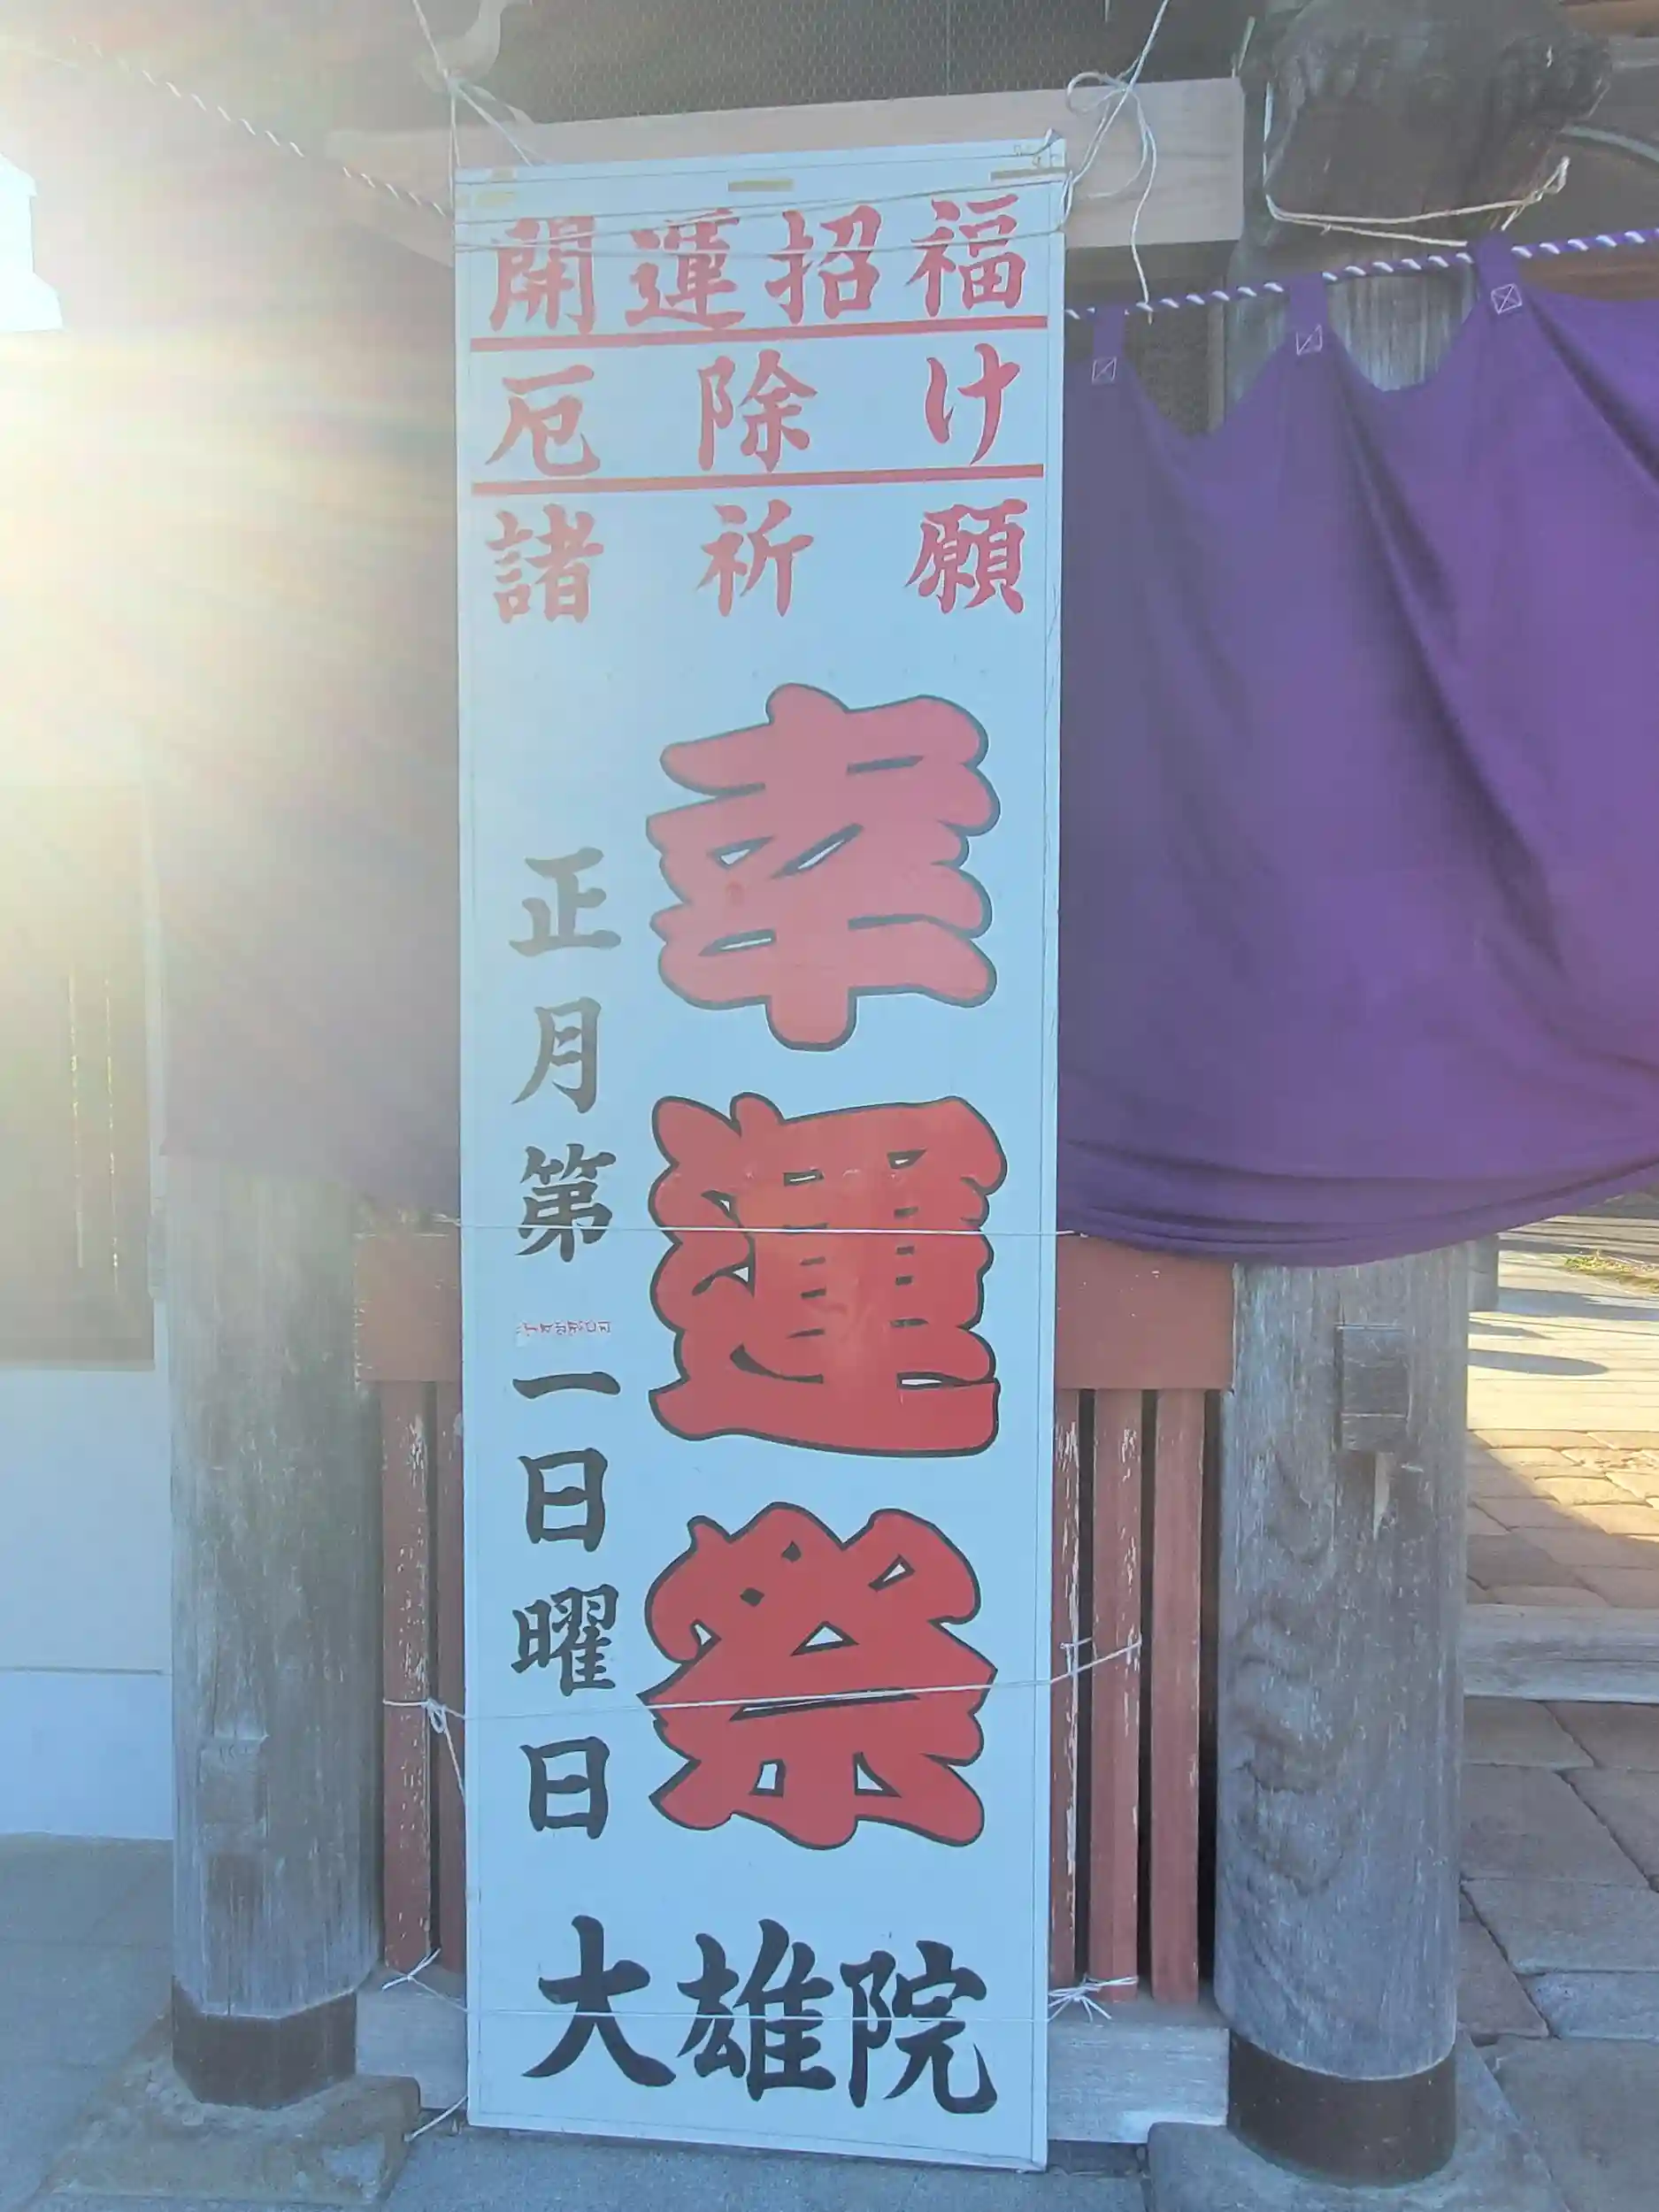 開運招福
厄除け
諸祈願
幸運祭
正月第一日曜日
大雄院